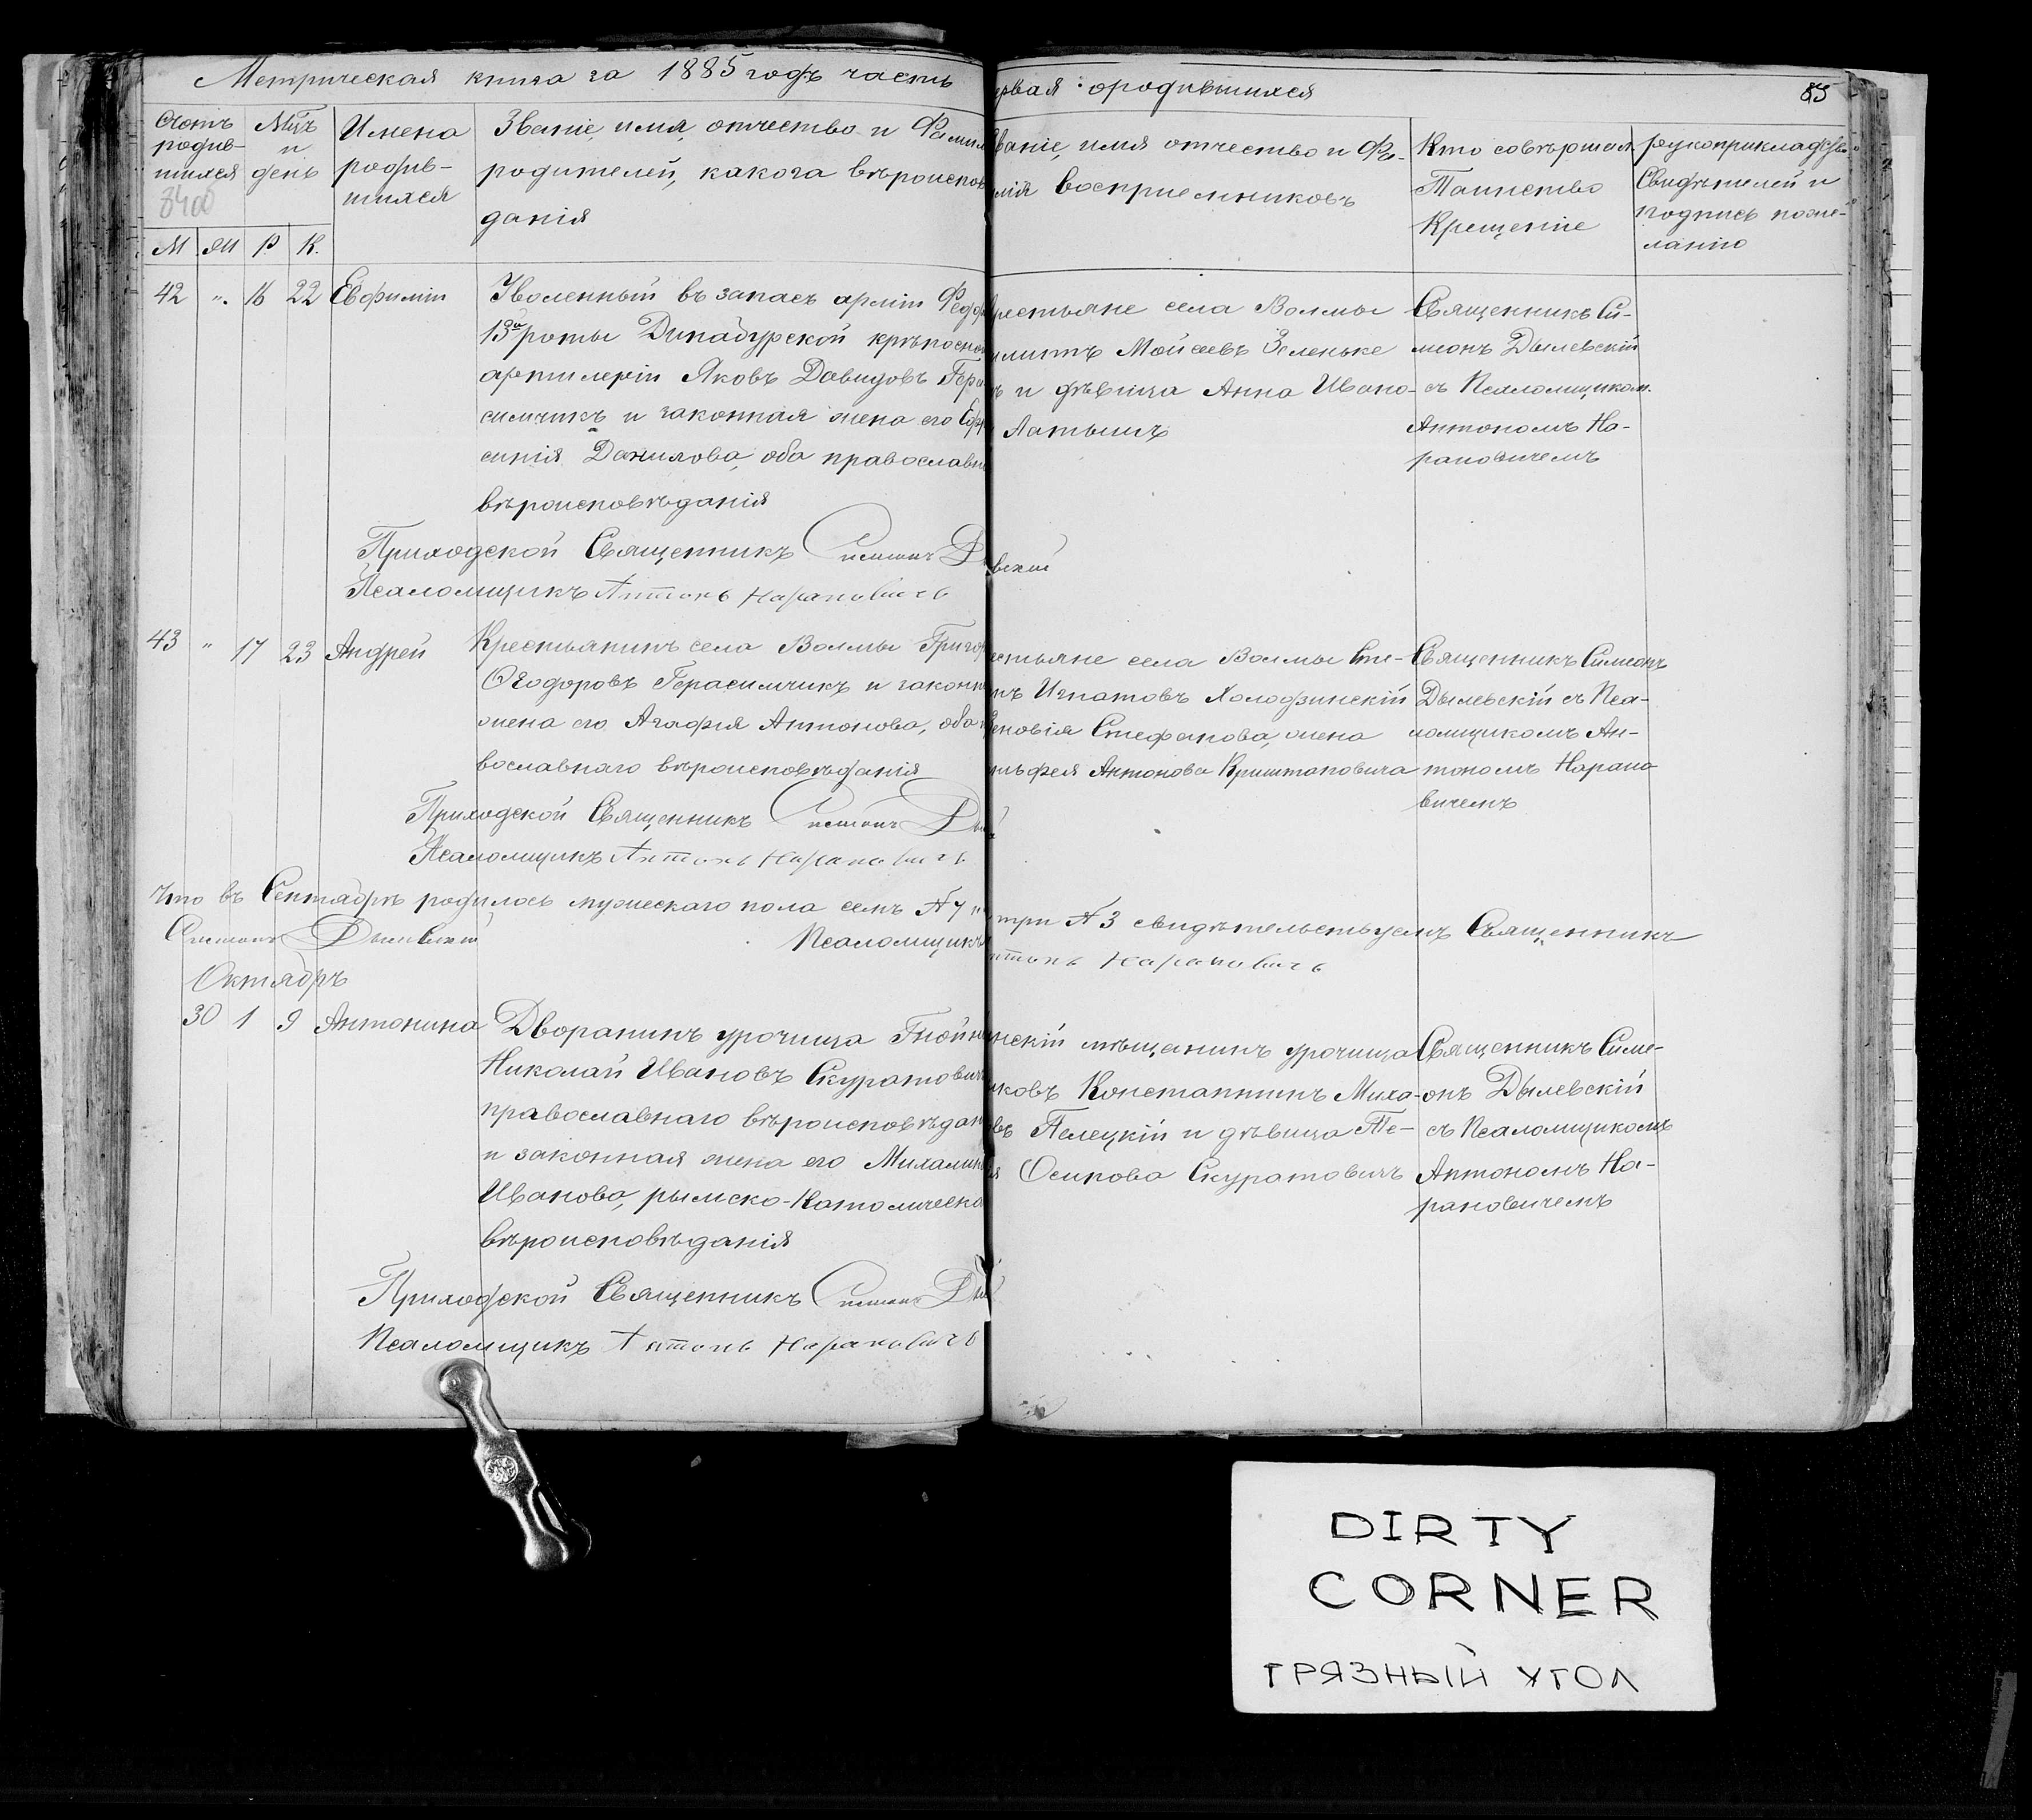 Метрическая книга за 1885 годъ часть
ервая: ородившихся
85
Счотъ родив-
шихся
3400
Мцъ
и
день
Имена
родив-
шихся
Званіе, имя, отчество и Фамил
родителей, какога вѣроиспов
данія
М Ж Р К.
ваніе, имя отчество и Фа-
илія восприемниковъ
Кто совѣршал
Таинство
Крещеніе
рукоприкладство
Свидѣтелей и
подпись поже-
ланію
42 ". 16 22 Евфимій
Уволенный въ запасъ арміи Фед
13й роты Динабургской крѣпосн
артилеріи Яковъ Давидовъ Гера
симчикъ и законная жена его Ефр
синія Данилова, оба православн
вѣроисповѣданія
рестьяне села Волмы
илиппъ Мойсеевъ Зеленьке
ъ и дѣвица Анна Ивано-
Латышъ
Священникъ Си-
меонъ Дылевскій
съ Псаломщиком.
Антономъ На-
рановичемъ
Приходской Священникъ Симеонъ Д
вскій
Псаломщикъ Антонъ Нарановичъ
43 " 17 23 Андрей
Крестьянинъ села Волмы Григор
Ѳеодоровъ Герасимчикъ и законн
жена его Агафія Антонова, оба п
вославнаго вѣроисповѣданія
естьяне села Волмы Сте-
нъ Игнатовъ Холодзинскій
еновія Стефанова, жена
мъфея Антонова Криштоповича
Священникъ Симеонъ
Дылевскій съ Пса-
ломщикомъ Ан-
тономъ Нарано
вичемъ
Приходской Священникъ Симеонъ Ды
Псаломщикъ Антонъ Нарановичъ
Что въ Сентябрѣ родилось мужескаго пола семь № 7 и
три № 3 свидѣтельствуемъ Священникъ
Симеонъ Дылевскій Псаломщикъ
нтонъ Нарановичъ
Октябрь
30 1 9 Антонина
Дворанинъ урочища Гнойн
Николай Ивановъ Скуратович
православнаго вѣроисповѣдан
и законная жена его Михалин
Иванова, рымско-Католическа
вѣроисповѣданія
нскій мѣщанинъ урочища
иковъ Константинъ Миха-
въ Пелецкій и дѣвица Те-
я Осипова Скуратовичъ
Священникъ Симе-
онъ Дылевскій
съ Псаломщикомъ
Антономъ На-
рановичемъ
Приходской Священникъ Симеонъ Ды
Псаломщикъ Антонъ Нарановичъ
DIRTY
CORNER
ГРЯЗНЫЙ УГОЛ